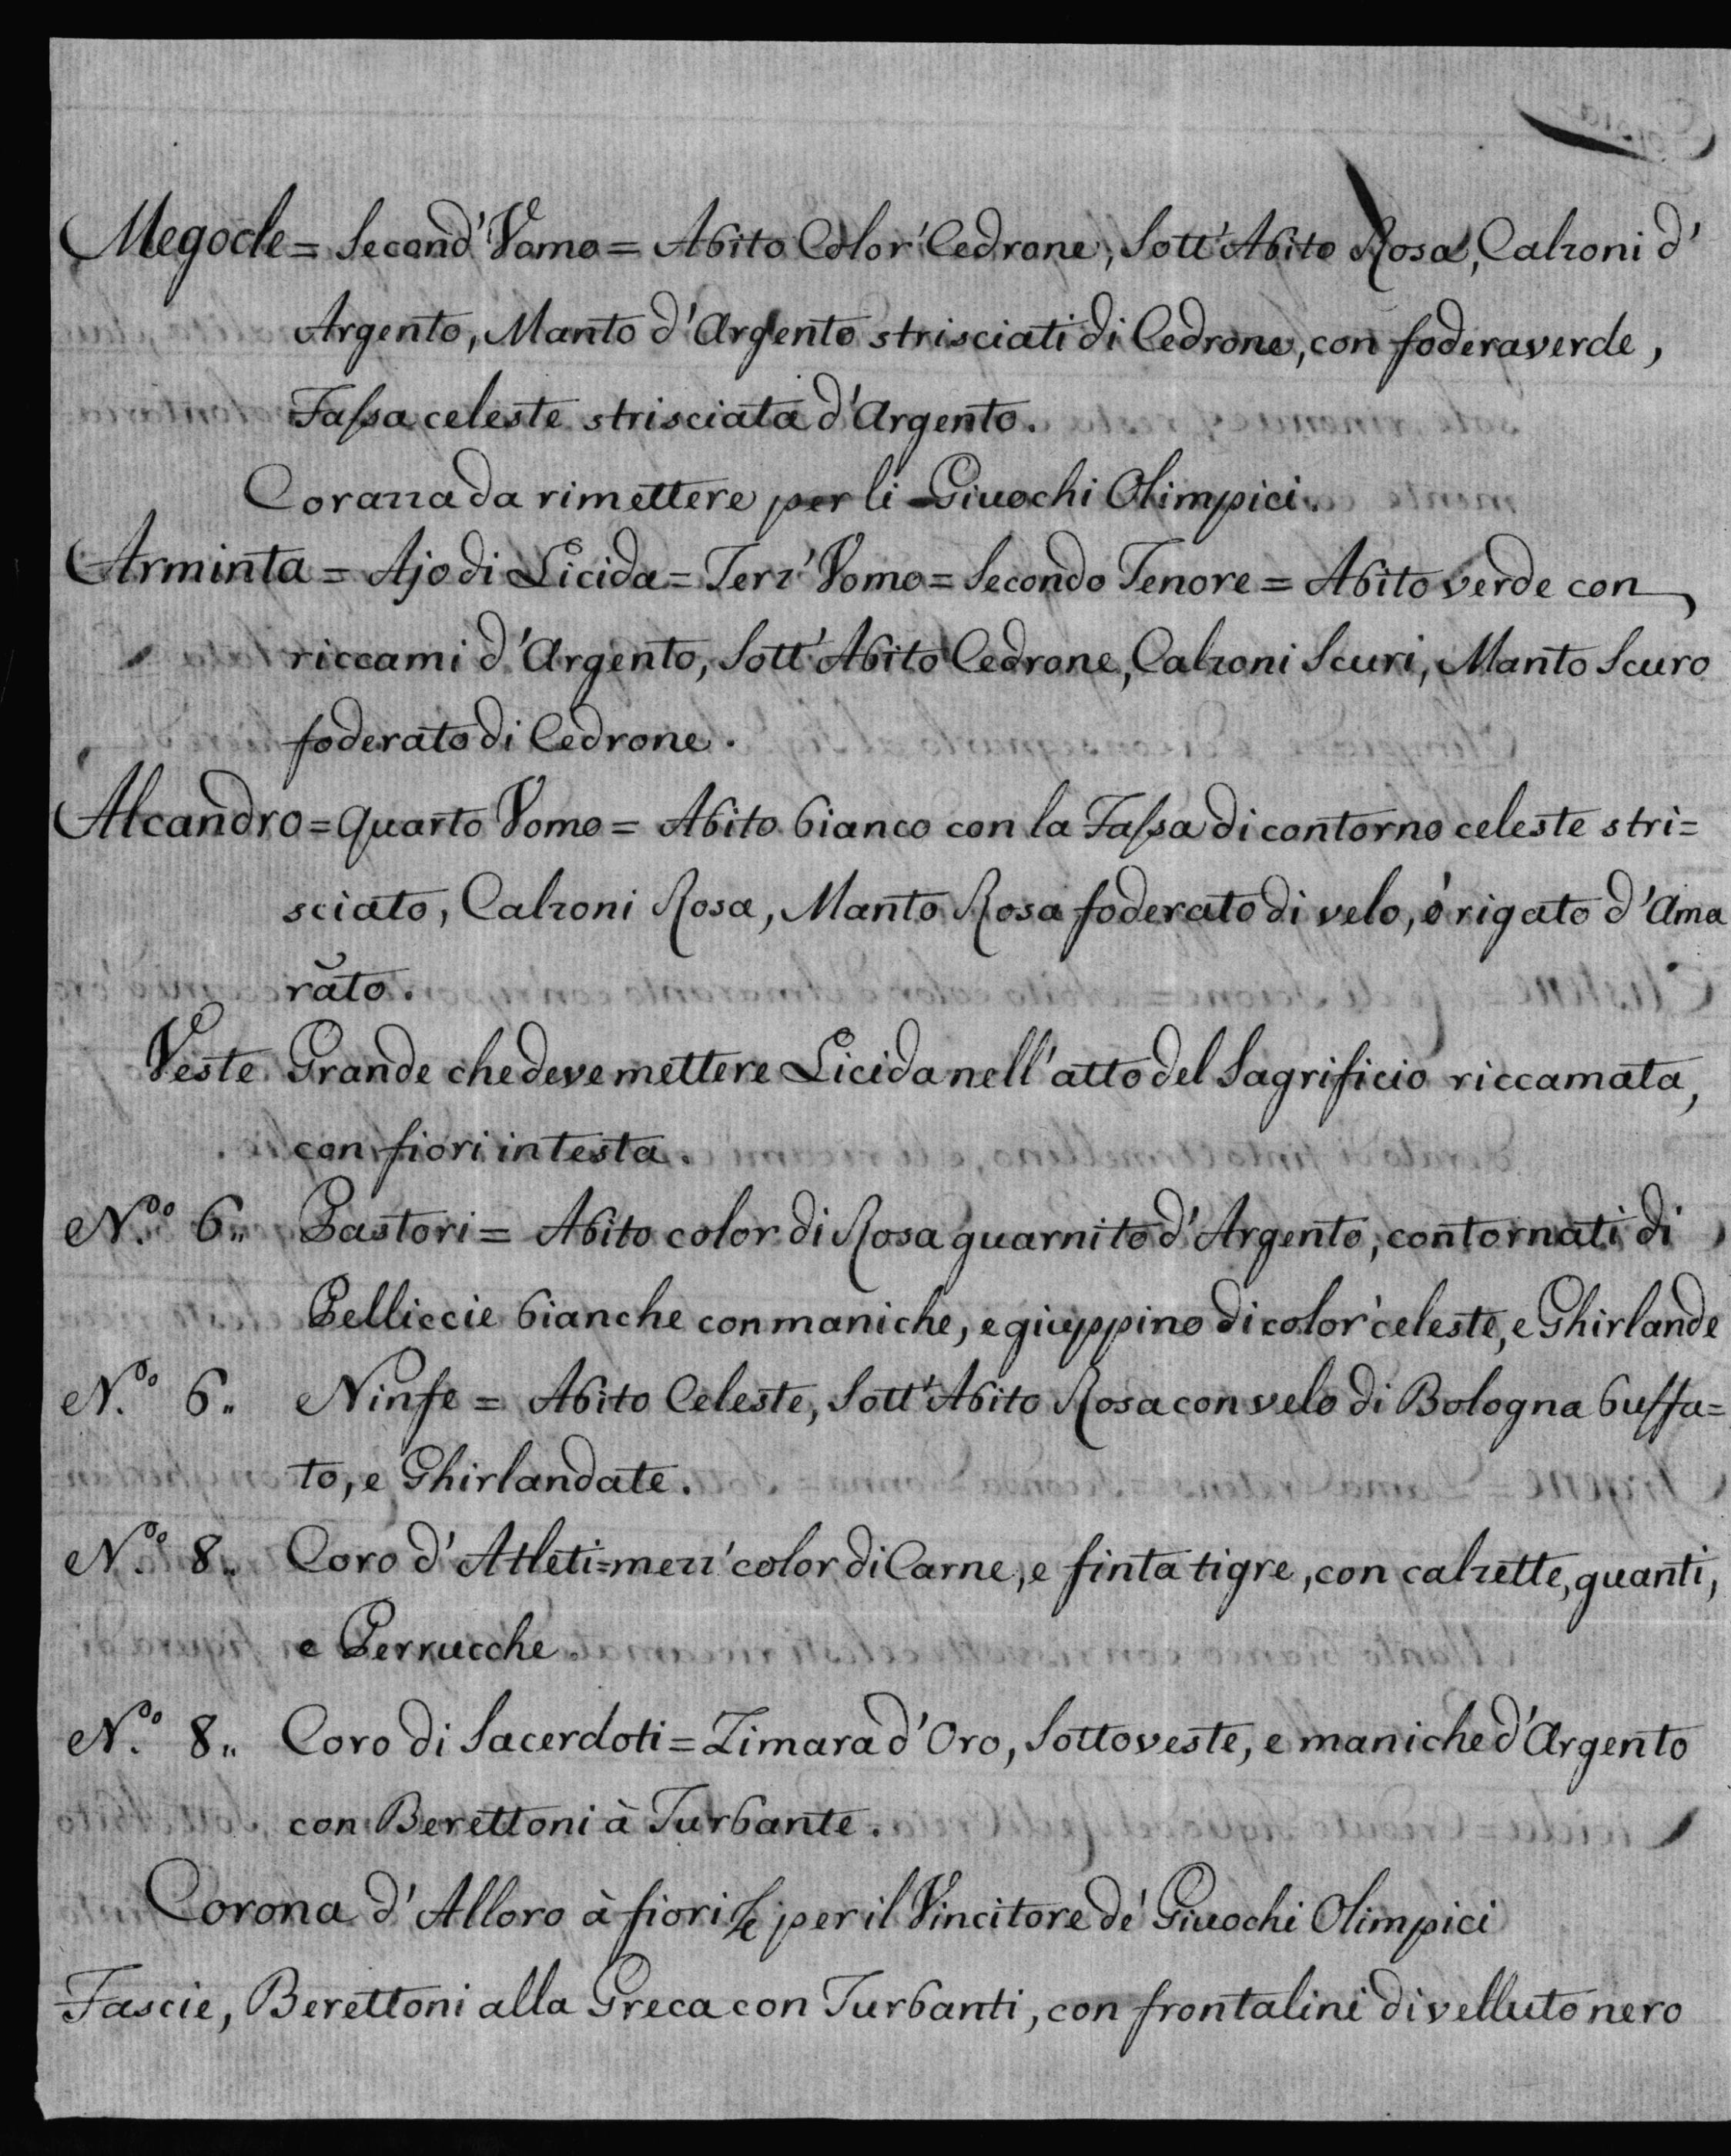 Megacle = Second' Vomo = Abito Color' Cedrone, Sott' Abito Rosa, Calzoni d'
Argento, Manto d'Argento strisciati di Cedrone, con fodera verde,
Fassa celeste strisciata d'Argento.
Corazza da rimettere per li Giuochi Olimpici.
Arminta = Ajo di Licida = Terz' Vomo = Secondo Tenore = Abito verde con
riccami d'Argento, Sott' Abito Cedrone, Calzoni Scuri, Manto Scuro
foderato di Cedrone.
Alcandro = Quarto Vomo = Abito bianco con la Fassa di contorno celeste stri=
sciato, Calzoni Rosa, Manto Rosa foderato di velo, ò rigato d'Ama
rato.
Veste Grande che deve mettere Licida nell' atto del Sagrificio riccamata,
con fiori in testa.
N.º 6.. Pastori = Abito color di Rosa guarnito d'Argento, contornati di
Pelliccie bianche con maniche, e giuppino di color' celeste, e Ghirlande
N.º 6.. Ninfe = Abito Celeste, Sott' Abito Rosa con velo di Bologna buffa=
to, e Ghirlandate.
N.º 8.. Coro d'Atleti = mezz' color di Carne, e finta tigre, con calzette, guanti,
e Perrucche.
N.º 8.. Coro di Sacerdoti = Zimara d'Oro, Sottoveste, e maniche d'Argento
con Berettoni à Turbante.
Corona d'Alloro à fiori per il Vincitore de' Giuochi Olimpici
Fascie, Berettoni alla Greca con Turbanti, con frontalini di velluto nero